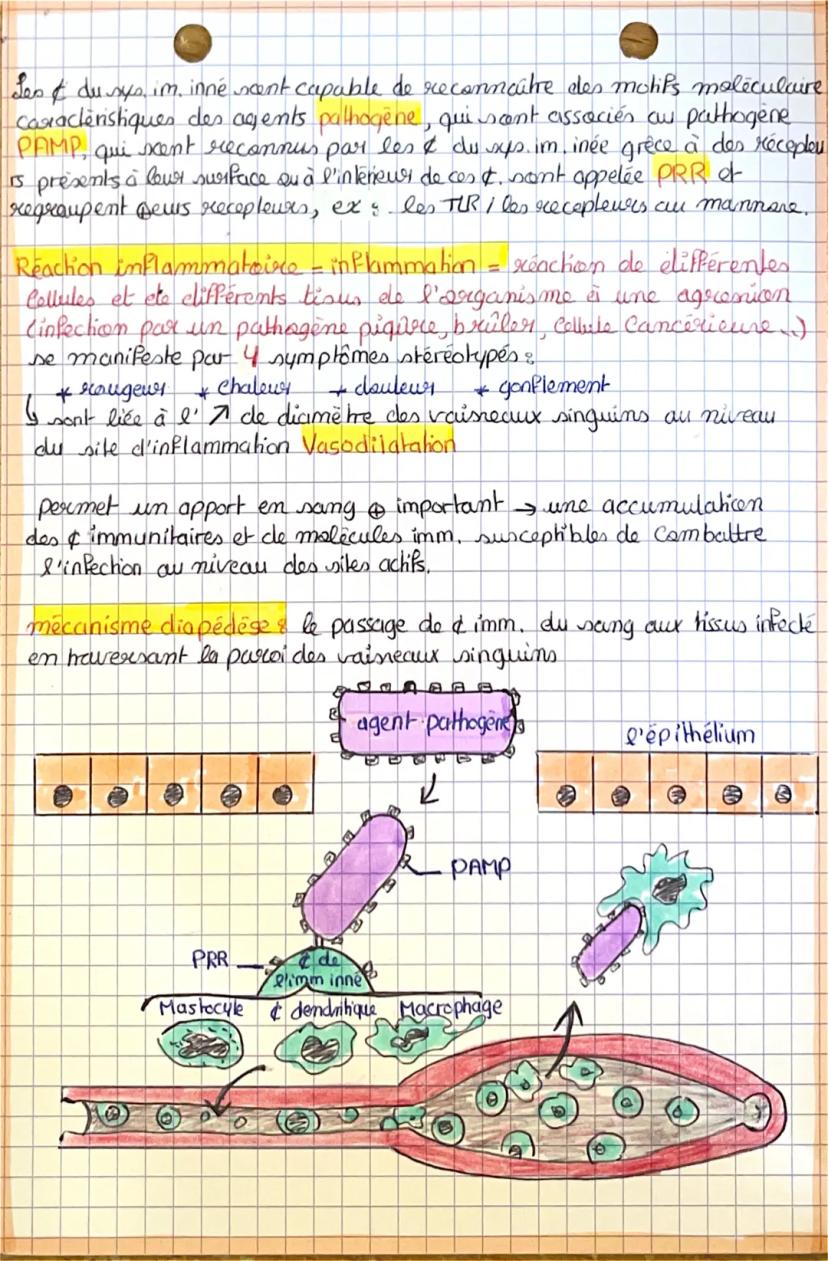 Les ¢ du sys. im. inné sont capable de reconnaître des motifs moléculaire
caractèristiques des agents pathogène, qui sont associés au pathogène
PAMP, qui sont reconnus par les ¢ du sys. im. inée grêce à des récepteu
rs présents à leur surface ou à l'intérieur de ces ¢. sont appelée PRR et
regroupent ⊕eurs recepteurs, ex : les TLR / les recepteurs au mannose.
Réaction inflammatoire = inflammation = réaction de différentes
Cellules et de différents tissus de l'organisme à une agression
(infection par un pathogène piqûre, brûler, Cellule Cancérieuse...)
se manifeste par 4 symptômes stéréotypés :
* rougeur * chaleur * douleur * gonflement
↳ sont liée à l' ↗ de diamètre des vaisseaux singuins au niveau
du site d'inflammation Vasodilatation
permet un apport en sang ⊕ important → une accumulation
des ¢ immunitaires et de molécules imm. susceptibles de Combattre
l'infection au niveau des sites actifs.
mécanisme diapédèse : le passage de ¢ imm. du sang aux tissus infecté
en traversant la paroi des vaisseaux singuins
agent pathogène
l'épithélium
PAMP
PRR
¢ de
l'imm inné
Mastocyte ¢ dendritique Macrophage